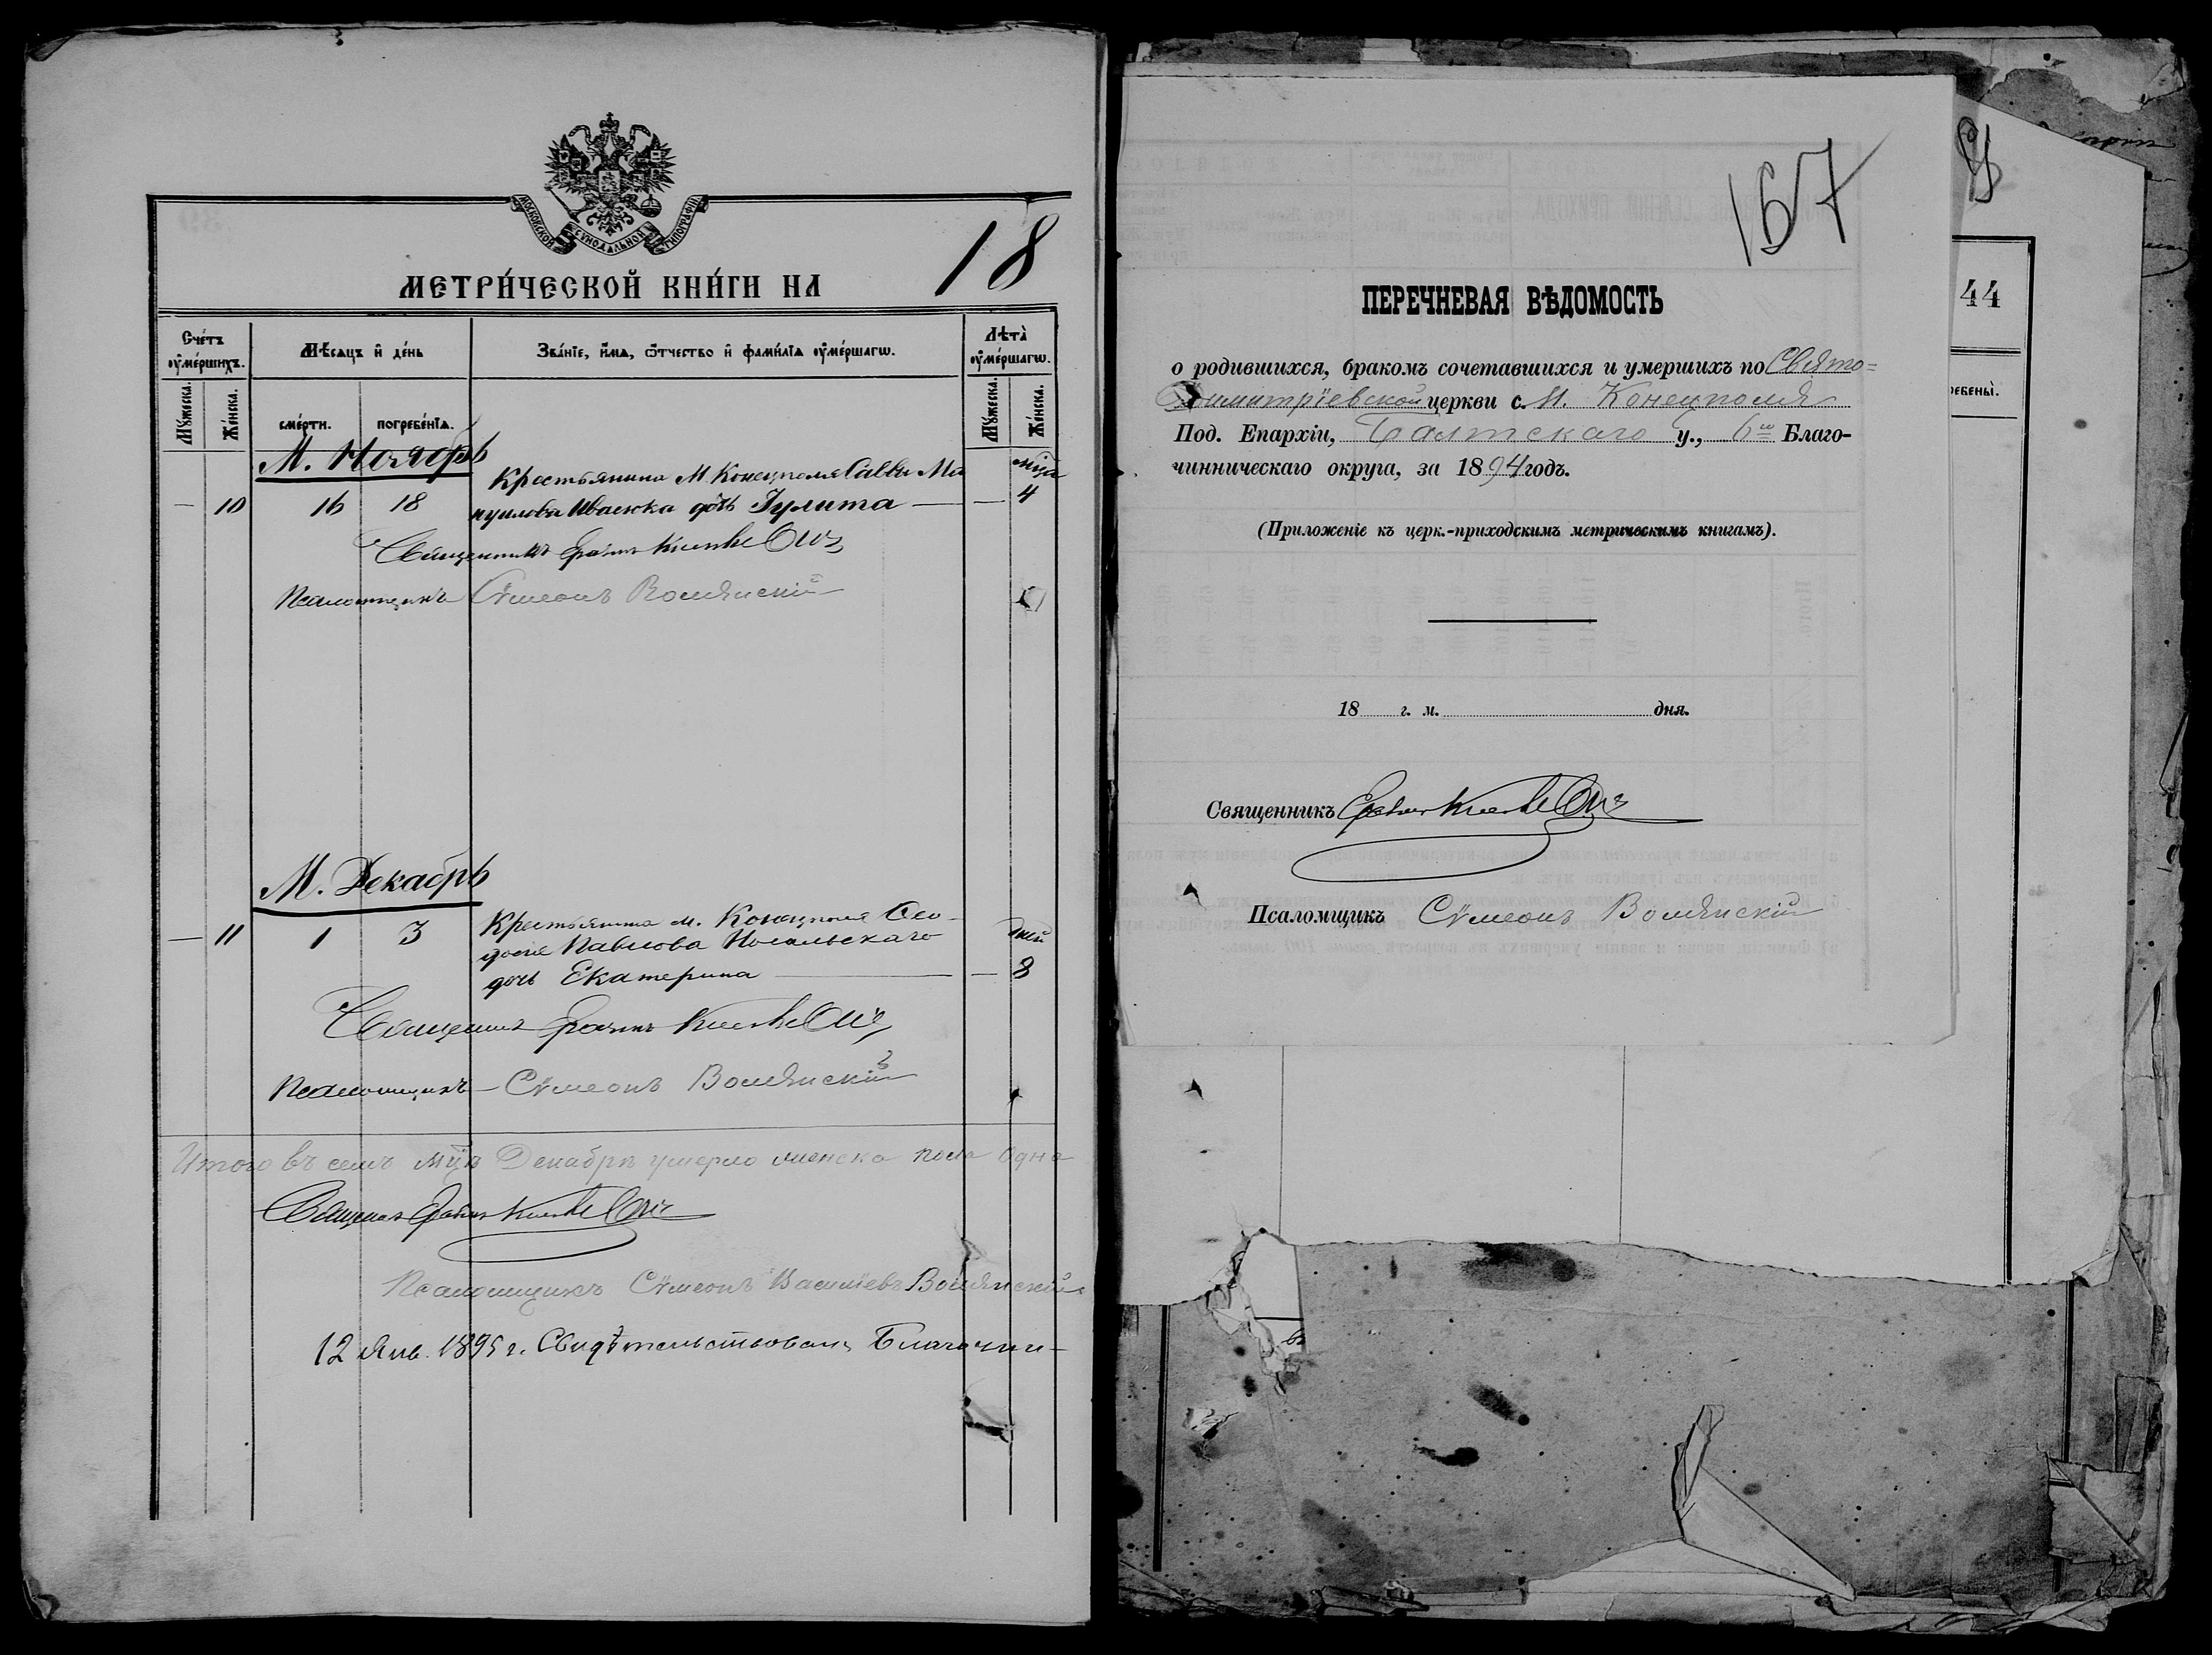 МОСКОВСКОЙ СУНОДАЛЬНОЙ ТИПОГРАФІИ
МЕТРИ́ЧЕСКОЙ КНИ́ГИ НА 18
Сче́тъ ᲂу҆ме́ршихъ.
Мѣ́сяцъ и҆ де́нь
Зва́нїе, и҆́мя, ѻ҆́тчество и҆ фами́лїа ᲂу҆ме́ршагѡ.
Лѣта̀ ᲂу҆ме́ршагѡ.
Мꙋ́жеска.
Же́нска.
сме́рти.
погребе́нїѧ.
Мꙋ́жеска.
Же́нска.
М. Ноябрь
Крестьянина М. Конецполя Саввы Ма
мца
— 10 16 18
нуилова Иваська дочь Іулита — — 4
Священникъ
Псаломщикъ Сѵмеонъ Волянскій
М. Декабрь
Крестьянина м. Конецполя Ѳео-
— 11 1 3
досія Павлова Носальскаго
дней
дочь Екатерина — — 8
Священникъ
Псаломщикъ Сѵмеонъ Волянскій
Итого въ семъ мцѣ Декабрѣ умерло женска пола одна
Священникъ
Псаломщикъ Сѵмеонъ Василіевъ Волянскій
12 Янв. 1895 г. Свидѣтельствовалъ Благочин-
167
ПЕРЕЧНЕВАЯ ВѢДОМОСТЬ
о родившихся, бракомъ сочетавшихся и умершихъ по Свято-
Димитріевской церкви с. М. Конецполя
Под. Епархіи, Балтскаго у., 6го Благо-
чинническаго округа, за 1894 годъ.
(Приложеніе къ церк.-приходскимъ метрическимъ книгамъ).
18 г. м. дня.
Священникъ
Псаломщикъ Сѵмеонъ Волянскій
44
ребены̀.